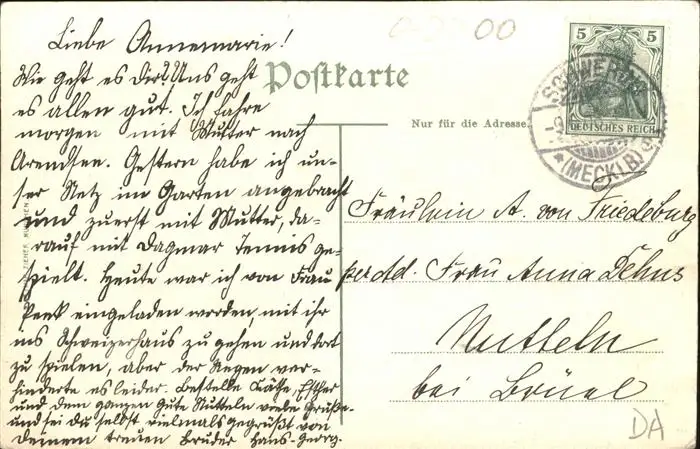 Liebe Annemarie!
Wie geht es Dir? Uns geht
es allen gut. Ich fahre
morgen mit Mutter nach
Arendsee. Gestern habe ich un-
ser Netz im Garten angebracht
und zuerst mit Mutter, da-
rauf mit Dagmar Tennis ge-
spielt. Heute war ich von Frau
Peek eingeladen worden, mit ihr
ins Schweizerhaus zu gehen und dort
zu spielen, aber der Regen ver-
hinderte es leider. Bestelle Käthe, Esther
und dem ganzen Gute Nutteln viele Grüße
und sei Du selbst vielmals gegrüßt von
Deinem treuen Bruder Hans-Georg.
Postkarte
Nur für die Adresse.
5 5
DEUTSCHES REICH
SCHWERIN
*(MECKLB)
Fräulein A. von Friedeburg
per Adr. Frau Anna Dehns
Nutteln
bei Brüel
00
DA